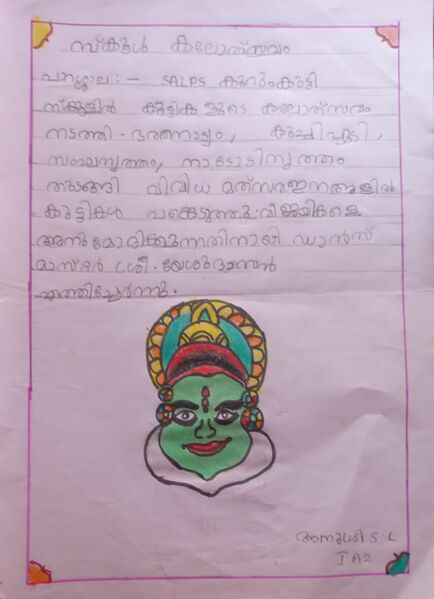 സ്കൂൾ കലോത്സവം
പാറശ്ശാല : - SALPS കുറുംകുട്ടി
സ്കൂളിൽ കുട്ടികളുടെ കലോത്സവം
നടത്തി. ഭരതനാട്യം, കുച്ചിപ്പുടി,
സംഘനൃത്തം, നാടോടിനൃത്തം
തുടങ്ങി വിവിധ മത്സരഇനങ്ങളിൽ
കുട്ടികൾ പങ്കെടുത്തു. വിജയികളെ
അനുമോദിക്കുന്നതിനായി ഡാൻസ്
മാസ്റ്റർ ശ്രീ. യേശുദാസൻ
എത്തിച്ചേർന്നു.
S.L
I A2